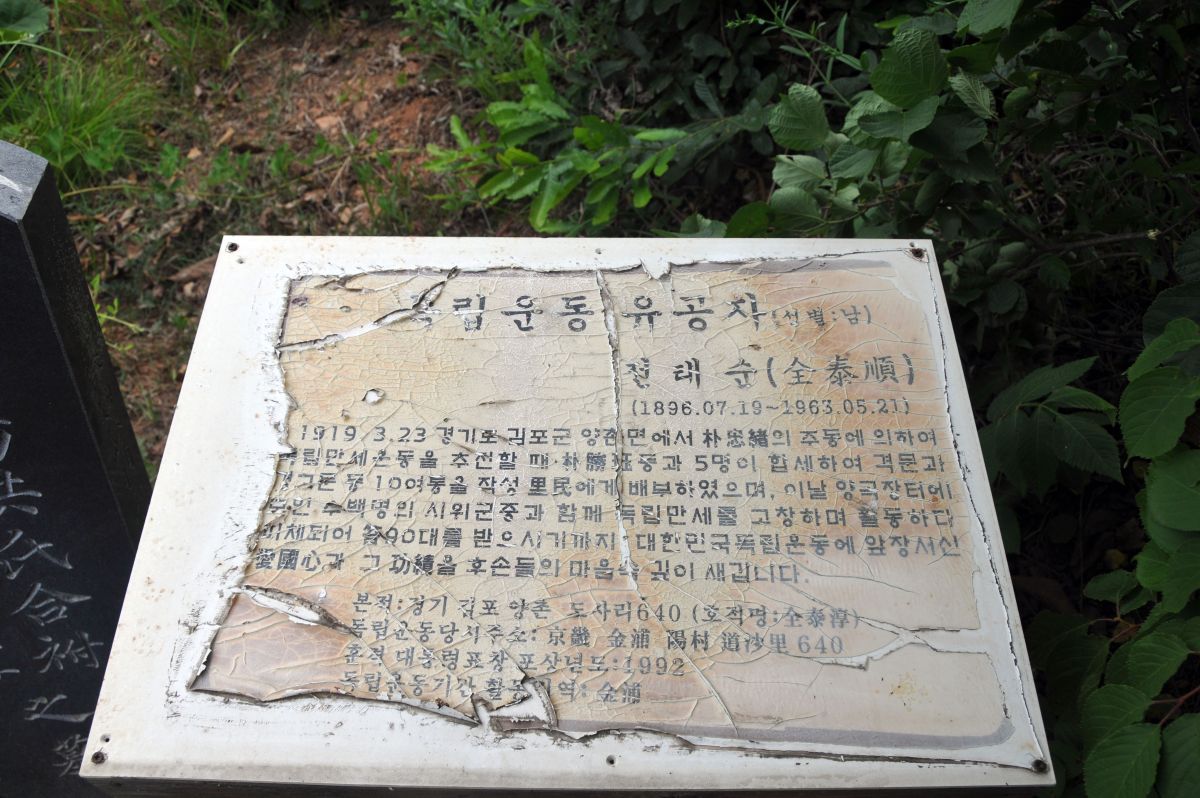 독립운동 유공자 (성별:남)
전태순(全泰順)
(1896.07.19~1963.05.21)
1919. 3.23 경기도 김포군 양촌면에서 朴忠緖의 주동에 의하여
독립만세운동을 추진할 때 朴勝 동과 5명이 합세하여 격문과
경고문 등 10여통을 작성 里民에게 배부하였으며, 이날 양곡장터에
모인 수백명의 시위군중과 함께 독립만세를 고창하며 활동하다
피체되어 笞90대를 받으시기까지 대한민국독립운동에 앞장서신
愛國心과 그 功績을 후손들의 마음속 깊이 새깁니다.
본적:경기 김포 양촌 도사리640 (호적명:全泰淳)
독립운동당시주소: 京畿 金浦 陽村 道沙里 640
훈격 대통령표창 포상년도:1992
독립운동기간 활동지역: 金浦